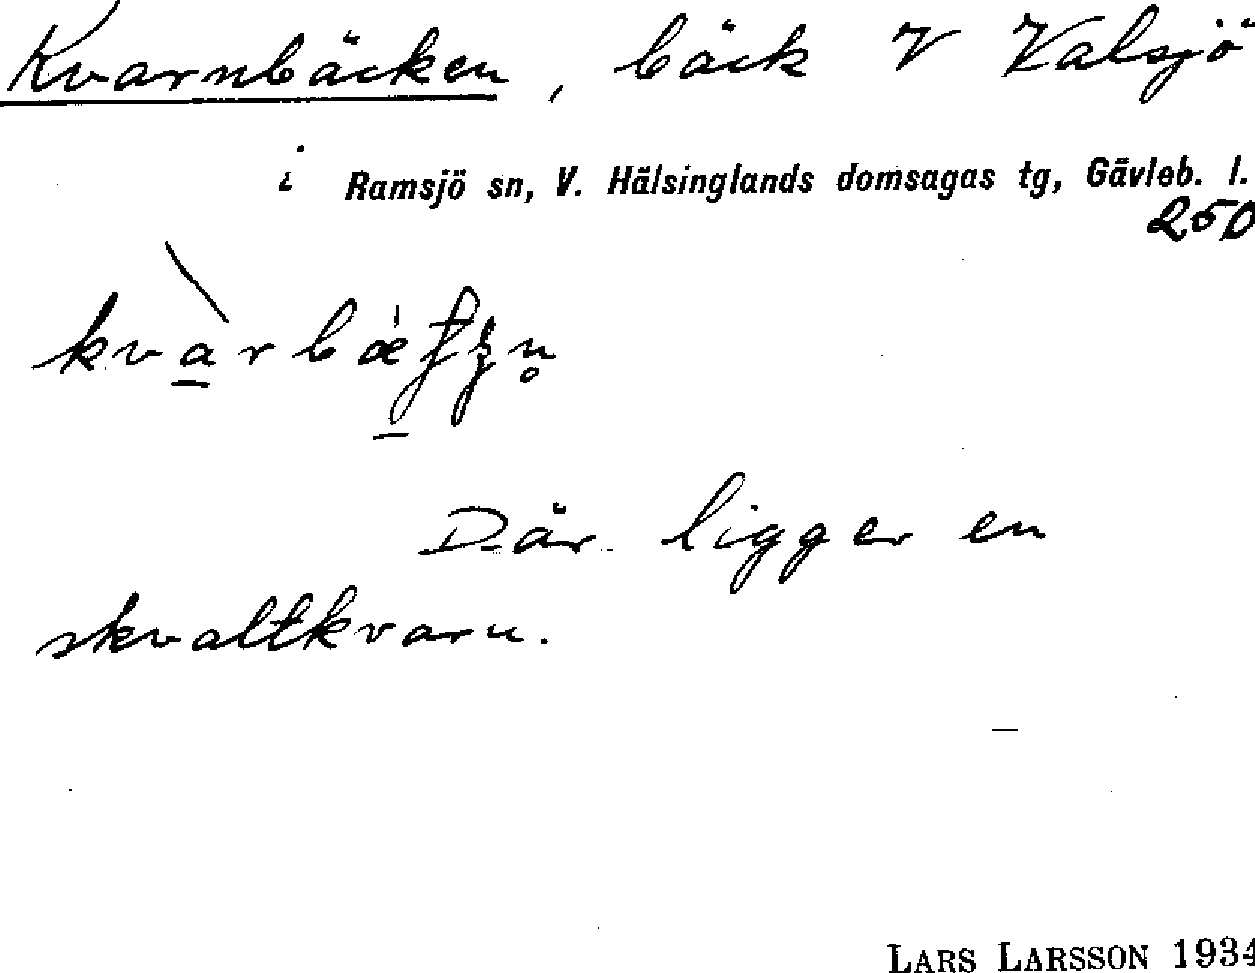 Kvarnbäcken, bäck V Valsjö
i Ramsjö sn, V. Hälsinglands domsagas tg, Gävleb. l.
250
Där ligger en
skvaltkvarn.
LARS LARSSON 1934